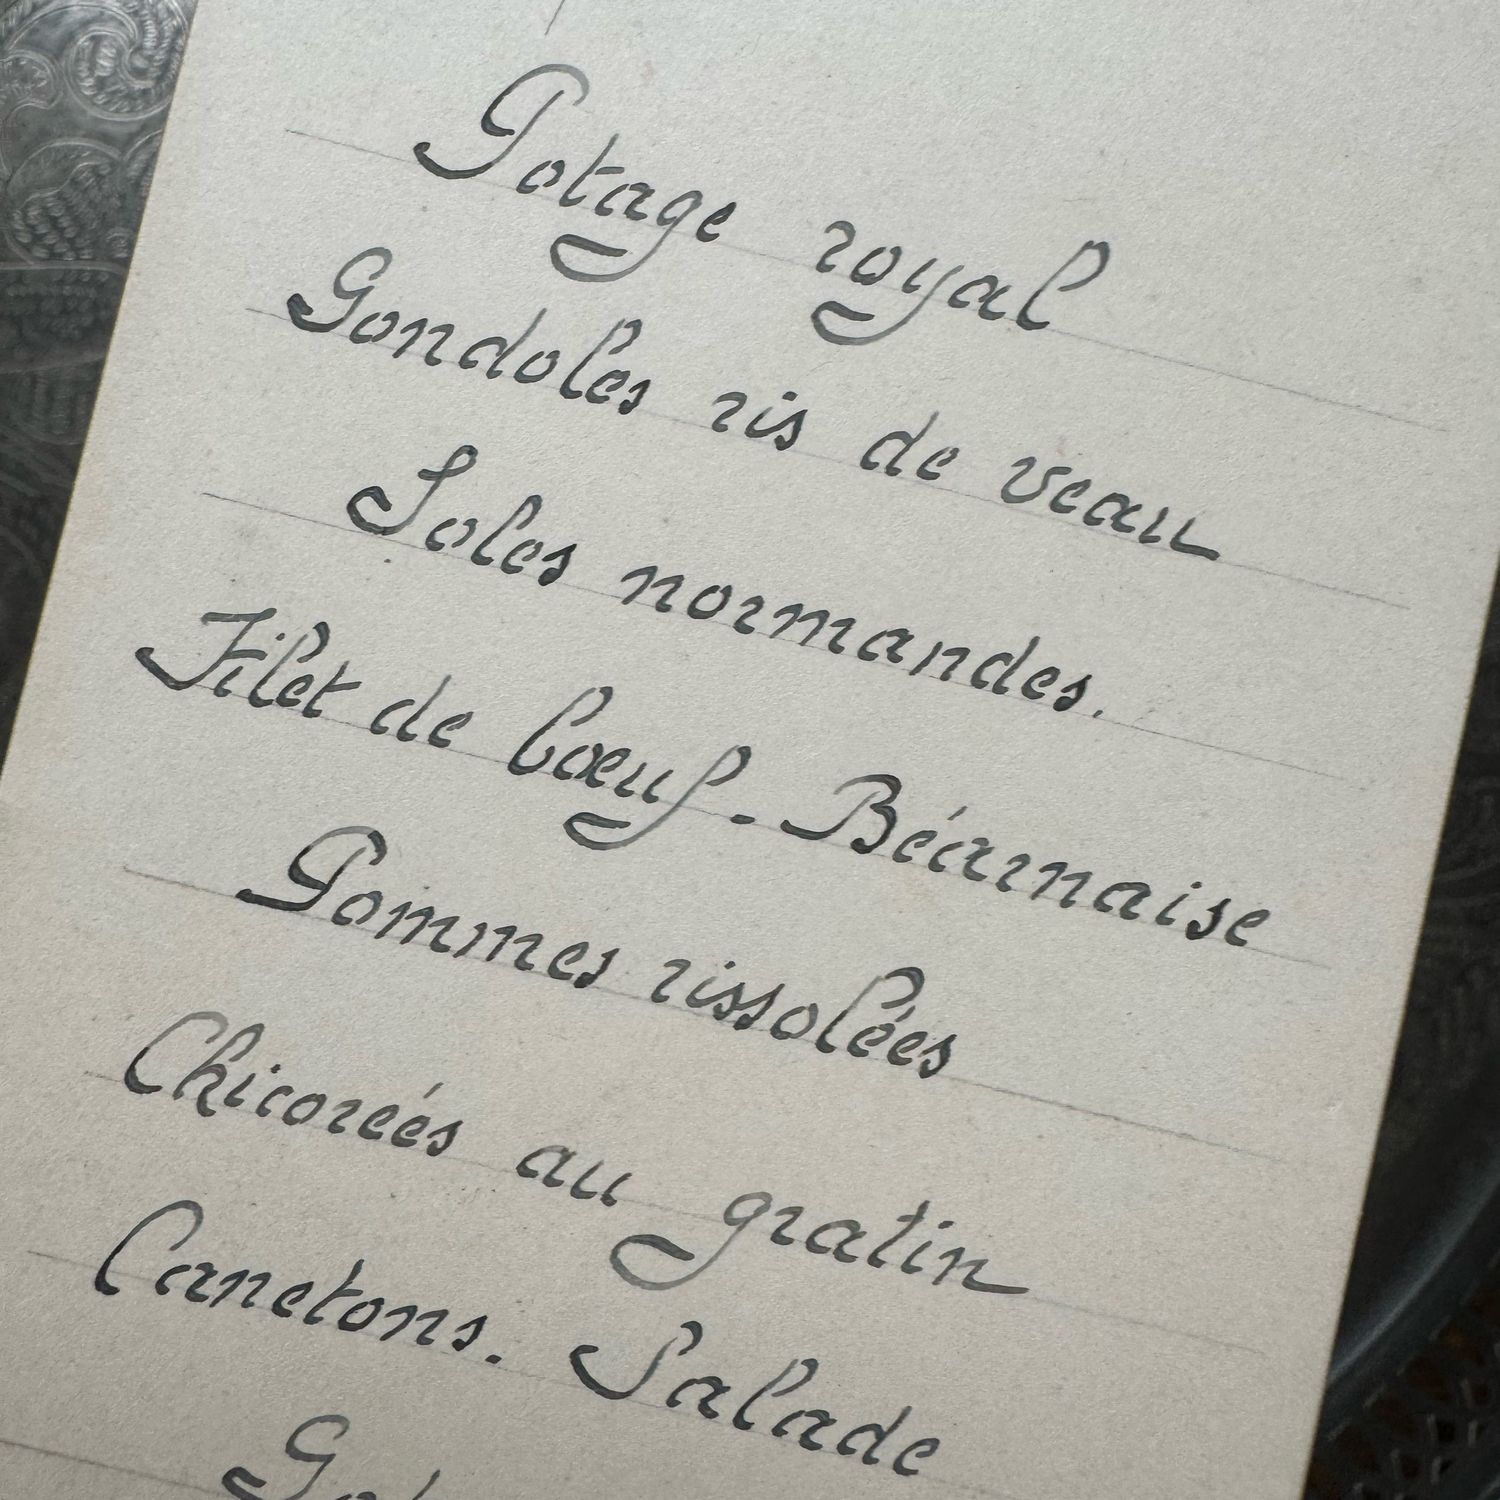 Potage royal
Gondoles ris de veau
Soles normandes.
Filet de bœuf - Béarnaise
Pommes rissolées
Chicoreés au gratin
Canetons. Salade